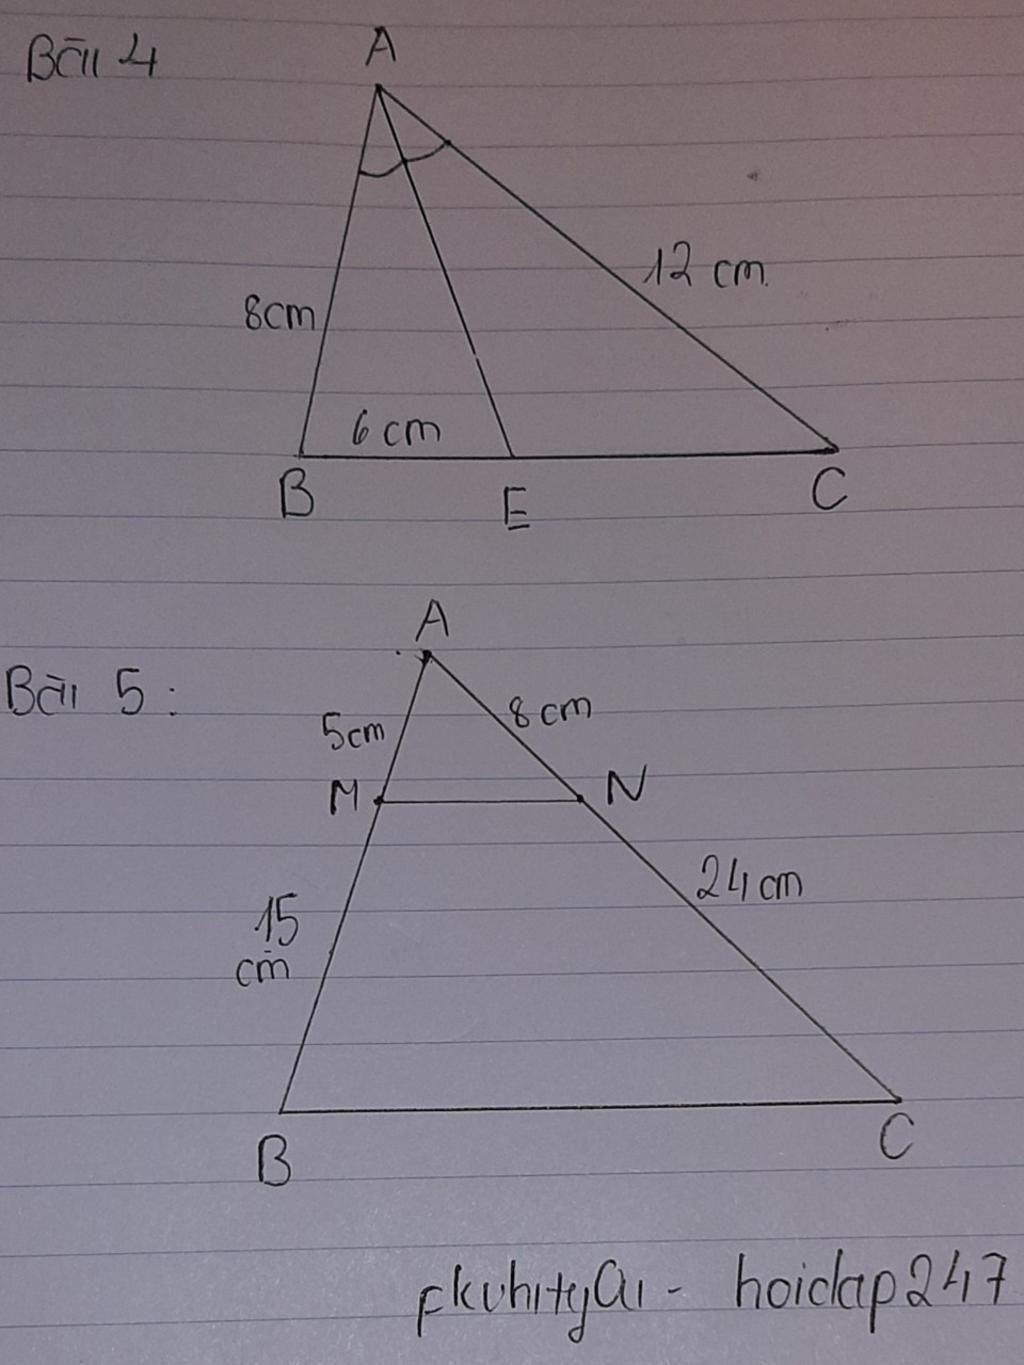 Bài 4
A
8cm
12 cm
6 cm
B
E
C
Bài 5:
A
5cm
8 cm
M
N
15
cm
24 cm
B
C
hoidap247